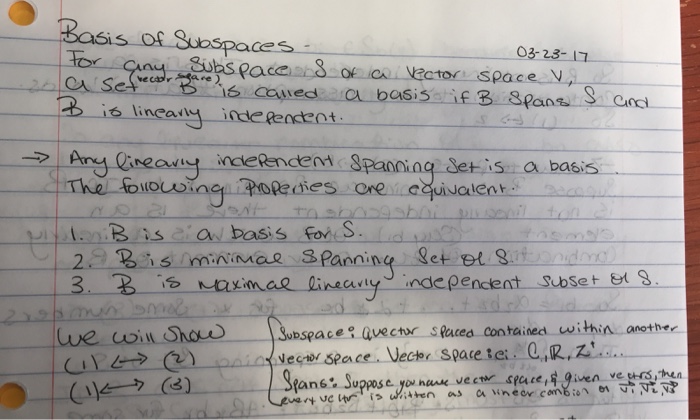 Basis of Subspaces -
03-23-17
For any Subspace S of a Vector space V,
(vector space)
a set B is called a basis if B Spans S and
B is linearly independent.
→ Any linearly independent Spanning Set is a basis.
The following Properties are equivalent:
1. B is a basis for S.
2. B is minimal Spanning Set of S.
3. B is maximal linearly independent subset of S.
We will Show
(1) ↔ (2)
(1) ↔ (3)
Subspace: a vector spaced contained within another
vector space. Vector space: C, R, Z ....
Spans: Suppose you have vector space, & given vectors, then
every vector is written as a linear of V1, V2, V3